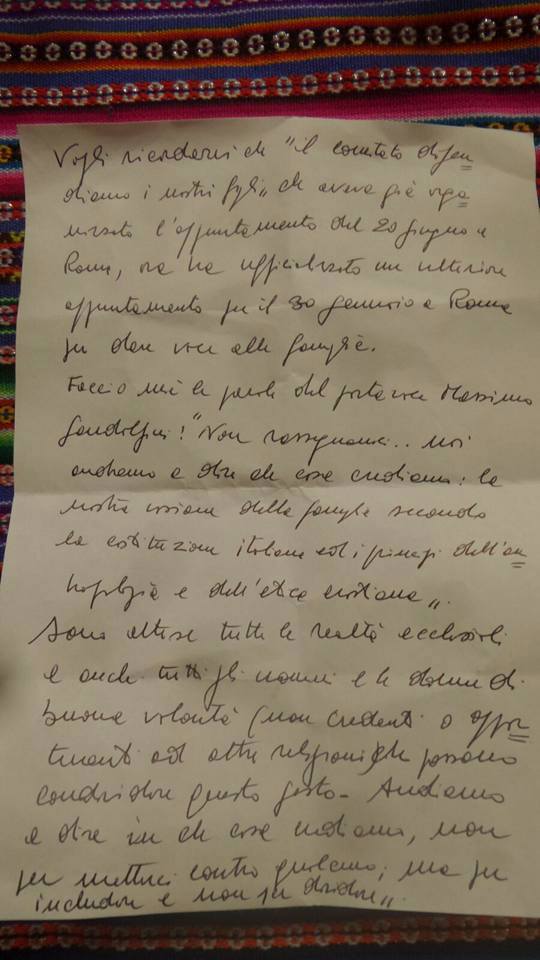 Vogli ricordarvi che "il comitato difen
diamo i nostri figli" che aveva già orga
nizzato l'appuntamento del 20 giugno a
Roma, ora ha ufficializzato un ulteriore
appuntamento per il 30 gennaio a Roma
per dare voce alle famiglie.
Faccio mie le parole del portavoce Massimo
Gandolfini! "Non rassegnamoci.. noi
andiamo a dire in che cosa crediamo: la
nostra visione della famiglia secondo
la costituzione italiana ed i principi dell'an
tropologia e dell'etica cristiana".
Sono attese tutte le realtà ecclesiali
e anche tutti gli uomini e le donne di
buona volontà (non credenti o appar
tenenti ad altre religioni) che possano
condividere questo gesto - Andiamo
a dire in che cosa crediamo, non
per metterci contro qualcuno; ma per
includere e non per dividere".